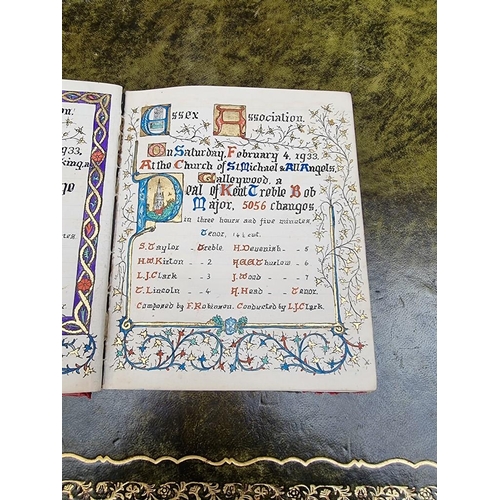 on.
1933.
Essex Association.
On Saturday, February 4, 1933.
At the Church of St. Michael & All Angels,
Galleywood, a
Peal of Kent Treble Bob
Major, 5056 changes,
in three hours and five minutes.
Tenor, 14½ cwt.
S. Taylor Treble. H. Devenish .. 5
H.W. Kirton .. 2 Thurlow .. 6
L.J. Clark .. 3 J. Wood .. 7
T. Lincoln .. 4 A. Head .. Tenor.
Composed by F. Robinson. Conducted by L.J. Clark.